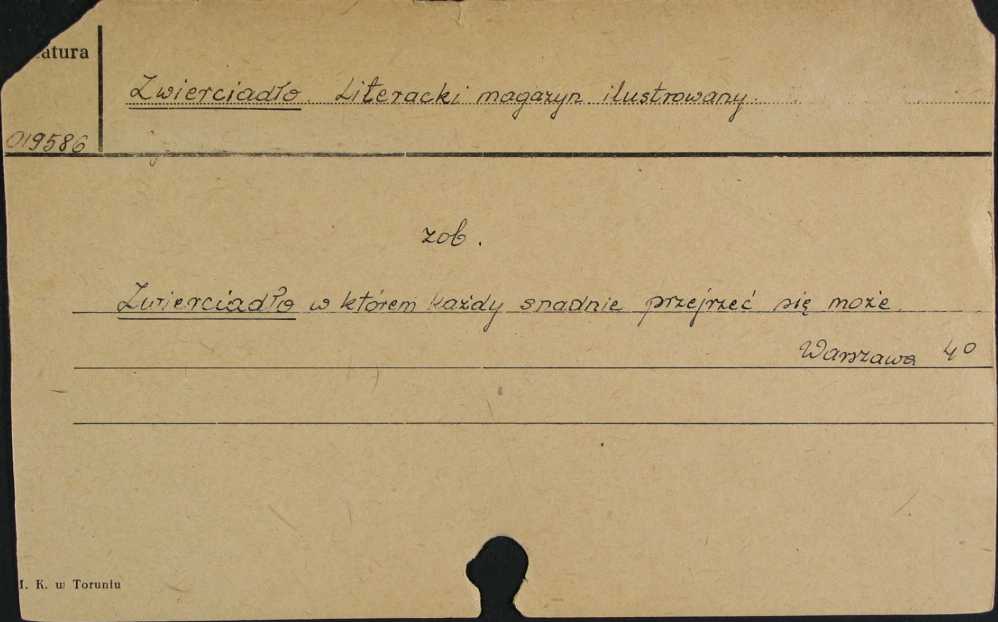 atura
Zwierciadło. Literacki magazyn ilustrowany.
019586
zob.
Zwierciadło w którem każdy snadnie przejrzeć się może.
Warszawa 4⁰
M. K. w Toruniu